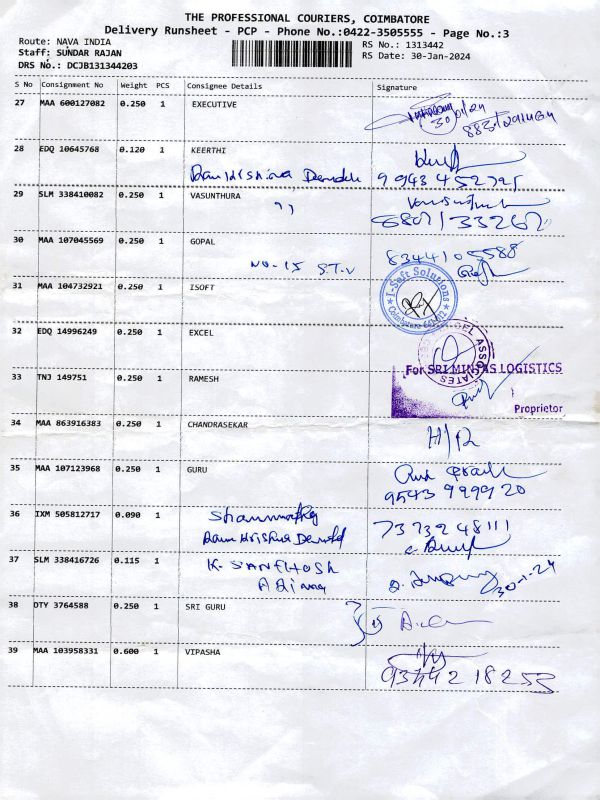 THE PROFESSIONAL COURIERS, COIMBATORE
Delivery Runsheet - PCP - Phone No.:0422-3505555 - Page No.:3
Route: NAVA INDIA RS No.: 1313442
Staff: SUNDAR RAJAN RS Date: 30-Jan-2024
DRS No.: DCJB131344203
S No Consignment No Weight PCS Consignee Details Signature
27 MAA 600127082 0.250 1 EXECUTIVE
30/1/24
28 EDQ 10645768 0.120 1 KEERTHI
29 SLM 338410082 0.250 1 VASUNTHURA
30 MAA 107045569 0.250 1 GOPAL 8344105588
NO-15 S.T.V
31 MAA 104732921 0.250 1 ISOFT I-Soft Solutions
32 EDQ 14996249 0.250 1 EXCEL
ASSOCIATES
33 TNJ 149751 0.250 1 RAMESH For SRI LOGISTICS
Proprietor
34 MAA 863916383 0.250 1 CHANDRASEKAR H/R
35 MAA 107123968 0.250 1 GURU
9543 999920
36 IXM 505812717 0.090 1 7373248111
37 SLM 338416726 0.115 1 K. SANTHOSH 30-1-24
38 DTY 3764588 0.250 1 SRI GURU
39 MAA 103958331 0.600 1 VIPASHA